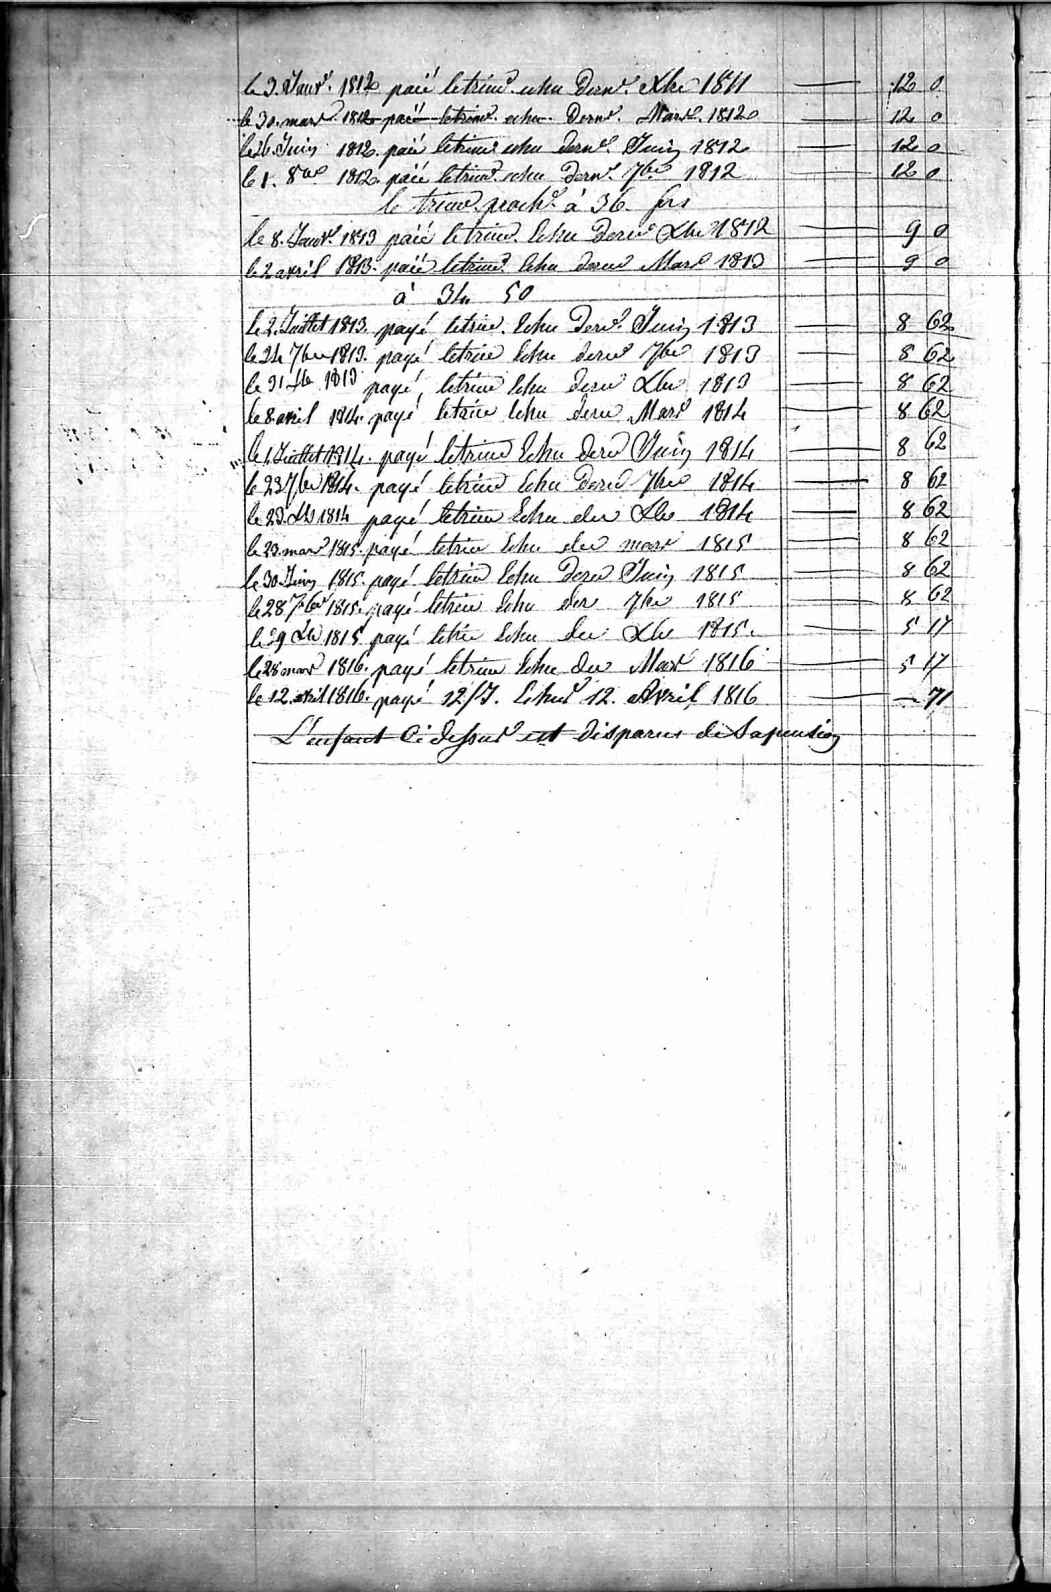 le 3. Janv.r 1812 paié le trim.e echu dern.r Xbre 1811 12 0
le 30. mars 1812 paié le trim.e echu dern.r Mars 1812 12 0
le 26. Juin 1812. paié le trim.e echu dern.r Juin 1812 12 0
le 1. 8bre 1812. paié le trim.e echu dern.r 7bre 1812 12 0
le trim.e proch.n à 36. frs
le 8. Janv.r 1813 paié le trim.e Echu dern.r Xbre 1812 9 0
le 2 avril 1813. paié le trim.e Echu dern.r Mars 1813 9 0
à 34 50
le 2. Juillet 1813. payé le trim. Echu dern.r Juin 1813 8 62
le 24 7bre 1813. payé le trim Echu dern.r 7bre 1813 8 62
le 31 Xbre 1813 payé le trim Echu dern Xbre 1813 8 62
le 8 avril 1814. payé le trim Echu dern Mars 1814 8 62
le 1. Juillet 1814. payé le trim Echu dern Juin 1814 8 62
le 23 7bre 1814. payé le trim Echu dern 7bre 1814 8 62
le 23. Xbre 1814 payé le trim Echu der Xbre 1814 8 62
le 23. mars 1815. payé le trim Echu der mars 1815 8 62
le 30. Juin 1815. payé le trim Echu dern Juin 1815 8 62
le 28 7bre 1815. payé le trim Echu der 7bre 1815 8 62
le 29 Xbre 1815 payé le trim Echu der Xbre 1815. 5 17
le 28 mars 1816. payé le trim Echu der Mars 1816 5 17
le 12. avril 1816. payé 12/J. Echus 12. Avril 1816 71
L'enfant Ci dessus est disparus de sa pension